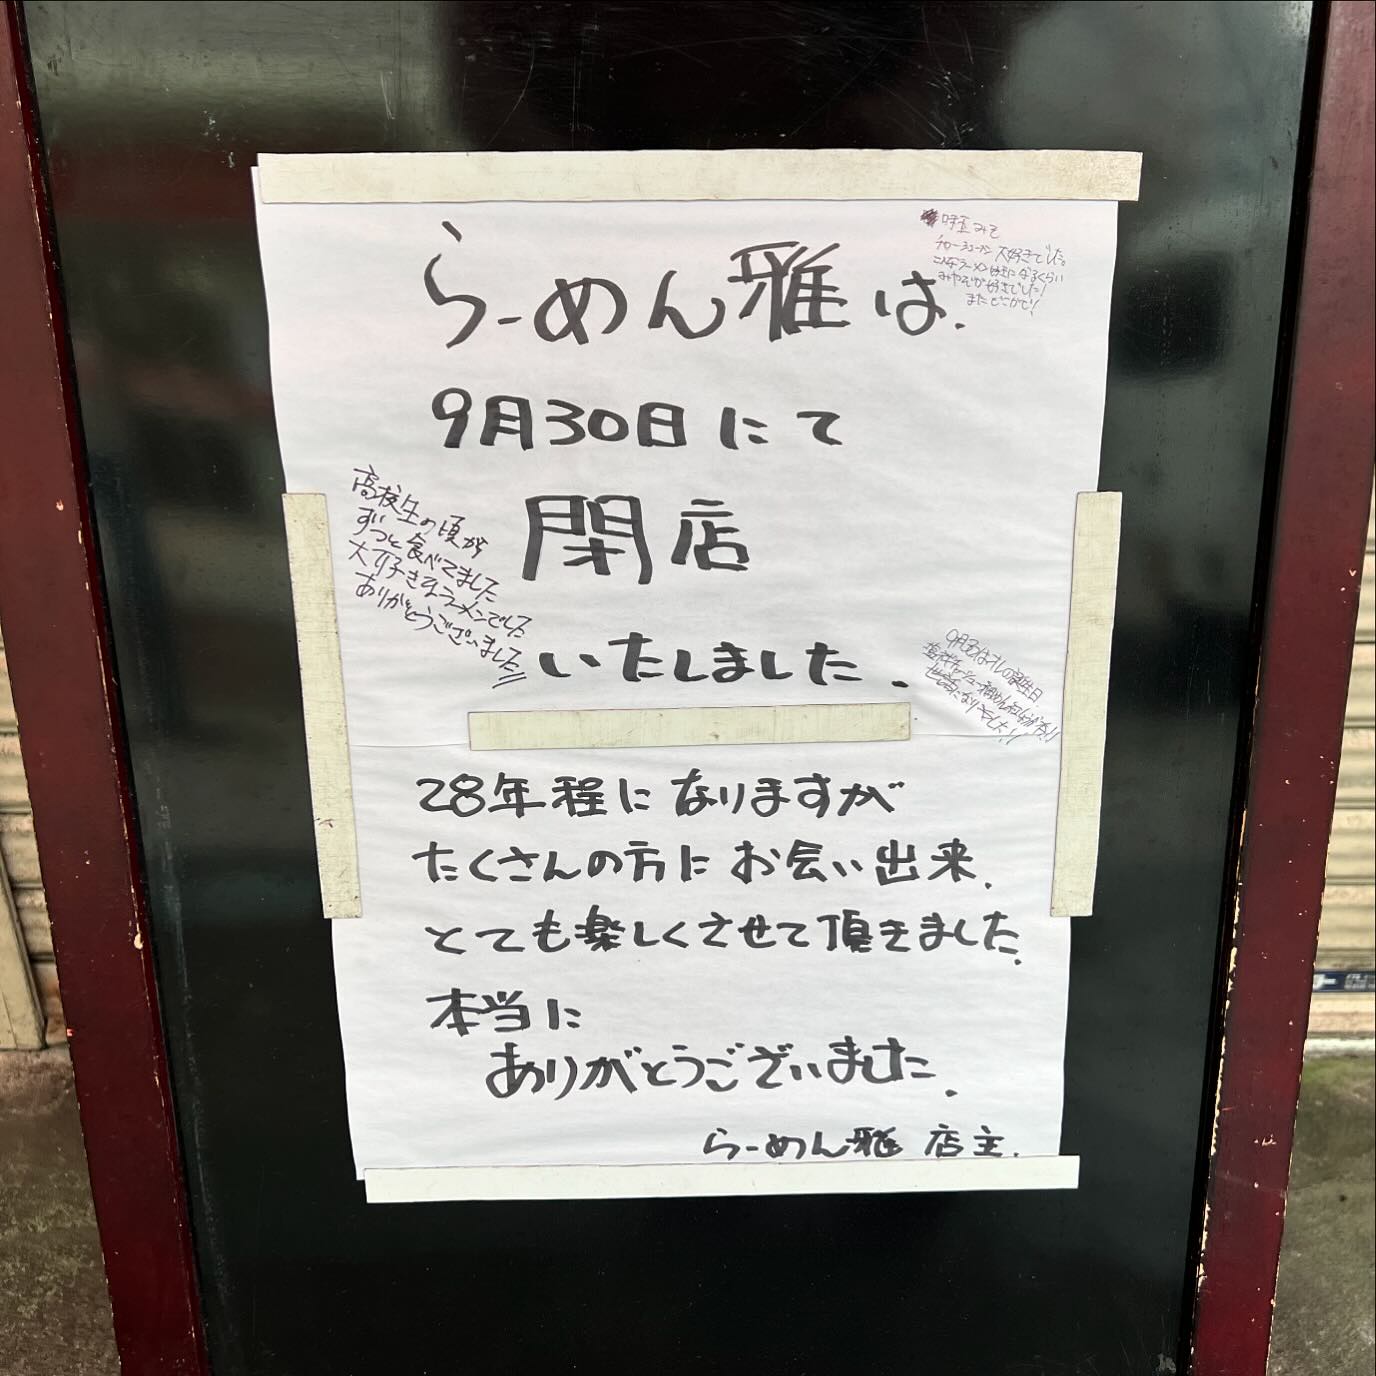 らーめん雅は.
9月30日にて
閉店
いたしました.
28年程になりますが
たくさんの方にお会い出来.
とても楽しくさせて頂きました.
本当に
ありがとうございました.
らーめん雅 店主.
高校生の頃から
ずっと食べてました
大好きなラーメンでした
ありがとうございました!!
みそ
チャーシューメン 大好きでした。
こんなラーメン好きになるくらい
みやびが好きでした!
またどこかで!
9月30はオレの誕生日
お世話になりました!!